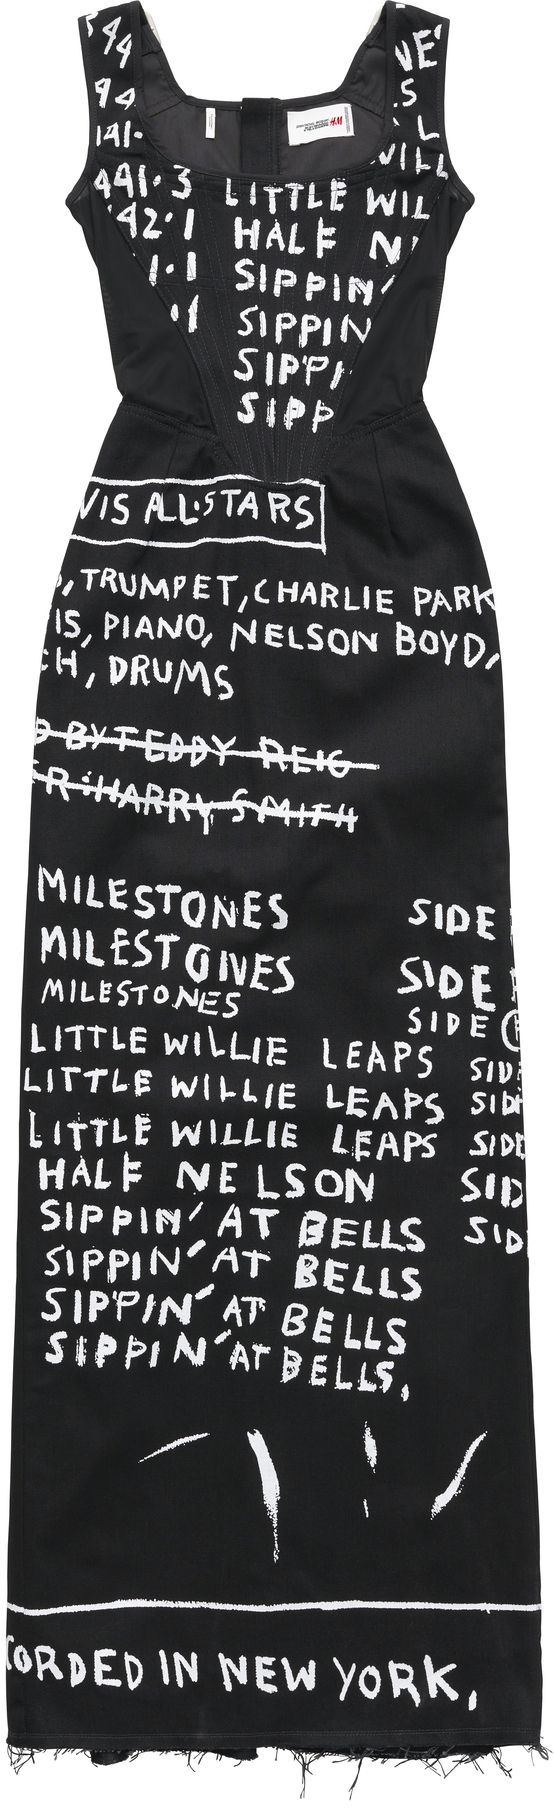 44
NE
44
S
141·
L
441·3 LITTLE WILL
442·1 HALF N
1·1 SIPPIN'
·1 SIPPIN
SIPPI
SIPP
H&M
VIS ALL·STARS
, TRUMPET, CHARLIE PARK
IS, PIANO, NELSON BOYD,
CH, DRUMS
D BY TEDDY REIG
ER: HARRY SMITH
MILESTONES SIDE
MILESTONES SIDE
MILESTONES SIDE
LITTLE WILLIE LEAPS SIDE
LITTLE WILLIE LEAPS SIDE
LITTLE WILLIE LEAPS SIDE
HALF NELSON SID
SIPPIN' AT BELLS SID
SIPPIN' AT BELLS
SIPPIN' AT BELLS
SIPPIN' AT BELLS,
CORDED IN NEW YORK,